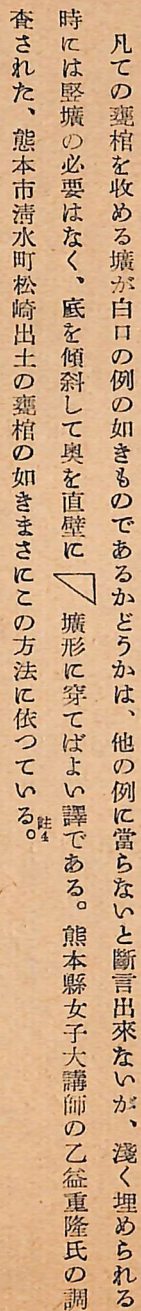 凡ての甕棺を收める壙が白口の例の如きものであるかどうかは、他の例に當らないと斷言出來ないが、淺く埋められる
時には竪壙の必要はなく、底を傾斜して奥を直壁に◺壙形に穿てばよい譯である。熊本縣女子大講師の乙益重隆氏の調
査された、熊本市淸水町松崎出土の甕棺の如きまさにこの方法に依つている。註4